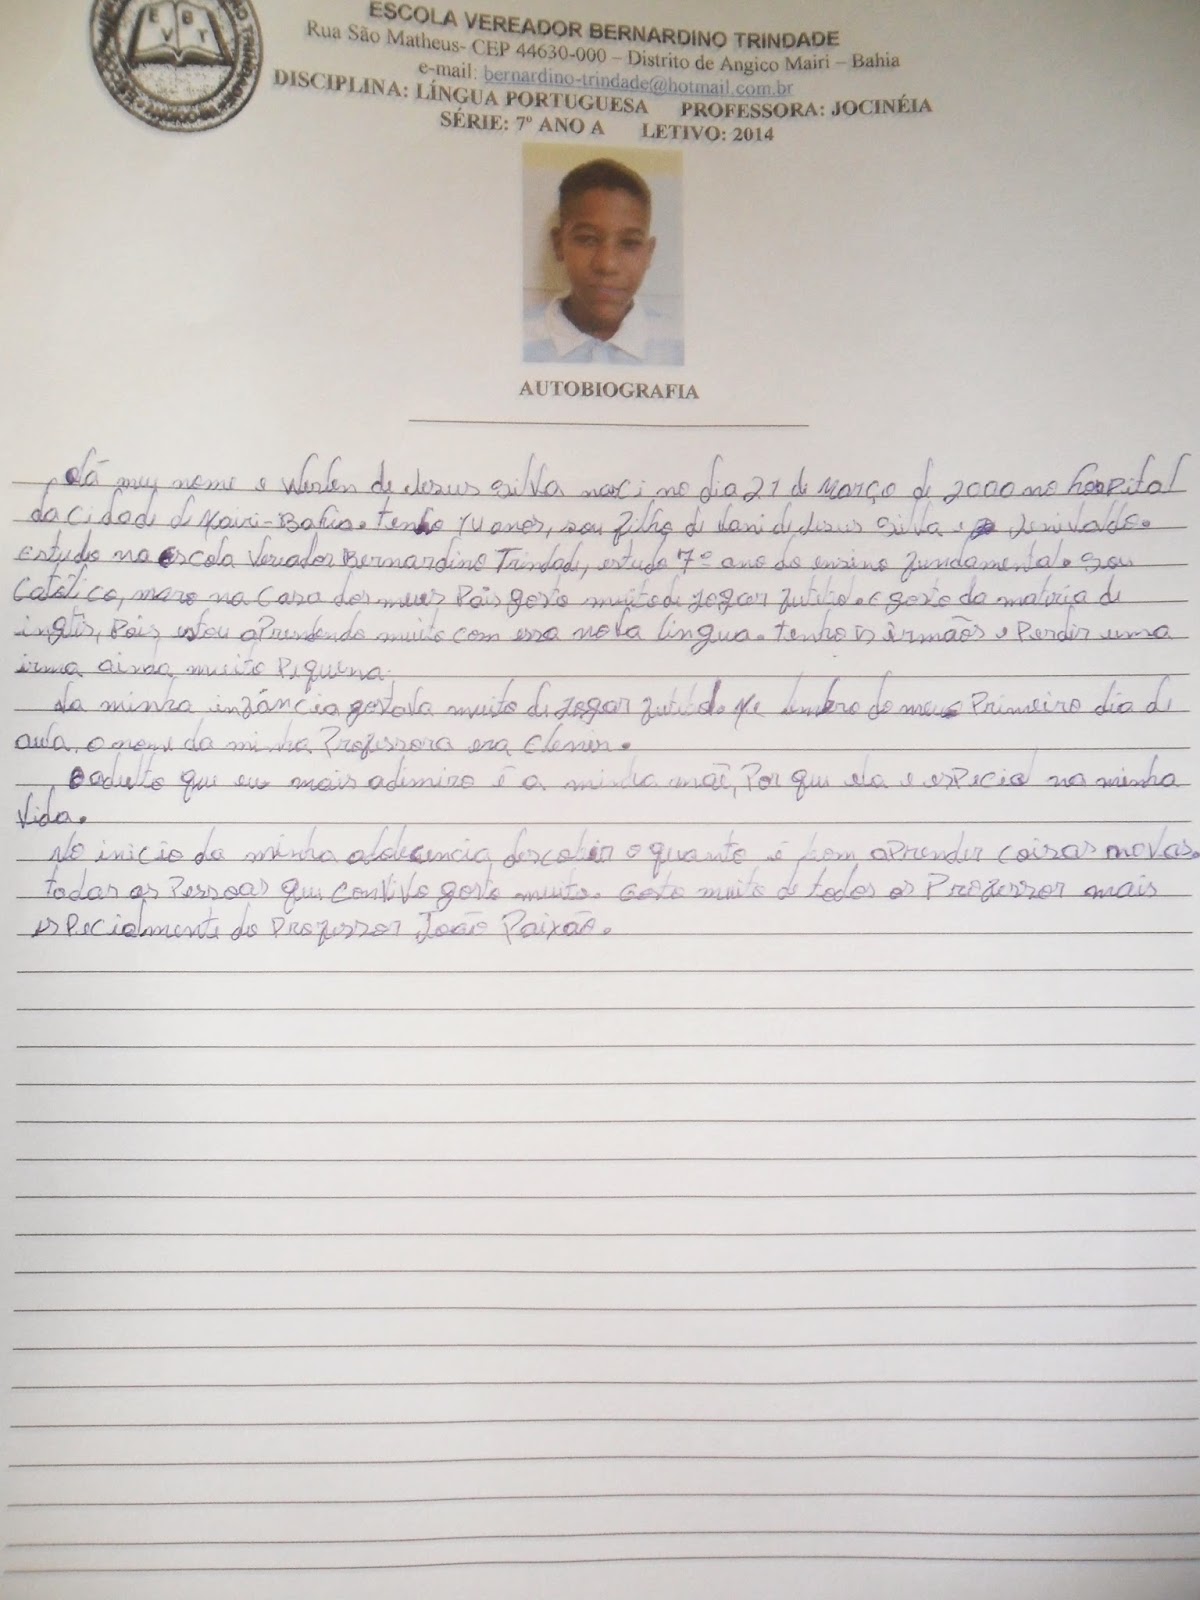 ESCOLA VEREADOR BERNARDINO TRINDADE
Rua São Matheus- CEP 44630-000 – Distrito de Angico Mairi – Bahia
e-mail: bernardino-trindade@hotmail.com.br
DISCIPLINA: LÍNGUA PORTUGUESA PROFESSORA: JOCINÉIA
SÉRIE: 7º ANO A LETIVO: 2014
E B
V T
AUTOBIOGRAFIA
meu nome e de Jesus Silva nasci no dia 21 de Março de 2000 no hospital
da cidade de Mairi-Bahia. tenho 14 anos, sou filho de de Jesus Silva e
Estudo na escola Vereador Bernardino Trindade, estudo 7º ano do ensino fundamental. Sou
Catolico, moro na Casa dos meus Pais gosto muito de jogar futibo. e gosto da materia de
inglês, Pois estou aPrendendo muito com essa nova lingua. tenho irmãos e Perdir uma
irma ainda muito Pequena.
Na minha infância gostava muito de jogar futibol. Me lembro do meu Primeiro dia de
aula, o nome da minha Professora era
O adulto que eu mais adimiro é a minha maê, Por que ela e esPecial na minha
Vida.
No inicio da minha descobrir o quanto é bom aPrender coisas novas.
todas as Pessoas que conVivo gosto muito. Gosto muito de todos os Professor mais
esPecialmente do Professor João Paixão.